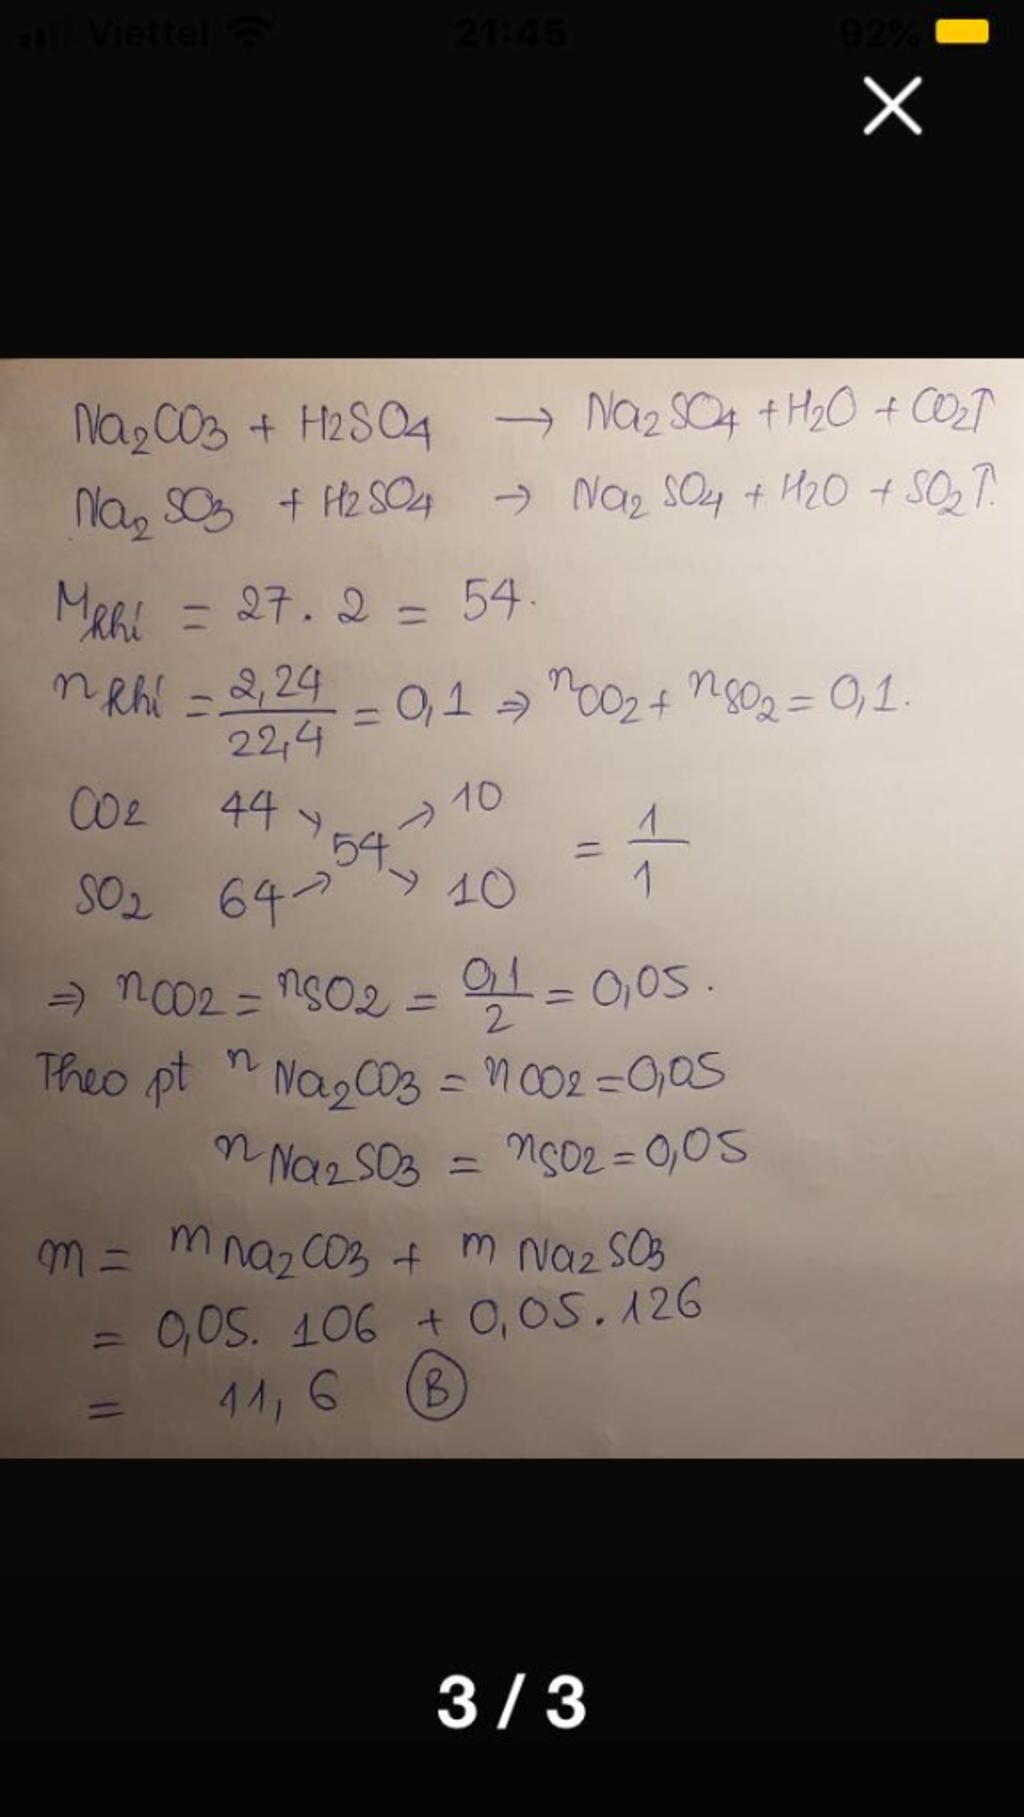 Viettel 21:45 92%
Na2CO3 + H2SO4 → Na2SO4 + H2O + CO2↑
Na2SO3 + H2SO4 → Na2SO4 + H2O + SO2↑.
Mkhí = 27. 2 = 54.
nkhí = 2,24/22,4 = 0,1 ⇒ nCO2 + nSO2 = 0,1.
CO2 44 ↘ 54 ↗ 10 = 1/1
SO2 64 ↗ ↘ 10
⇒ nCO2 = nSO2 = 0,1/2 = 0,05.
Theo pt nNa2CO3 = nCO2 = 0,05
nNa2SO3 = nSO2 = 0,05
m = mNa2CO3 + mNa2SO3
= 0,05. 106 + 0,05. 126
= 11,6 B
3 / 3